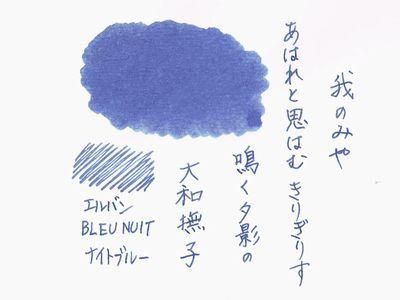 我のみや
あはれと思はむきりぎりす
鳴く夕影の
大和撫子
エルバン
BLEU NUIT
ナイトブルー